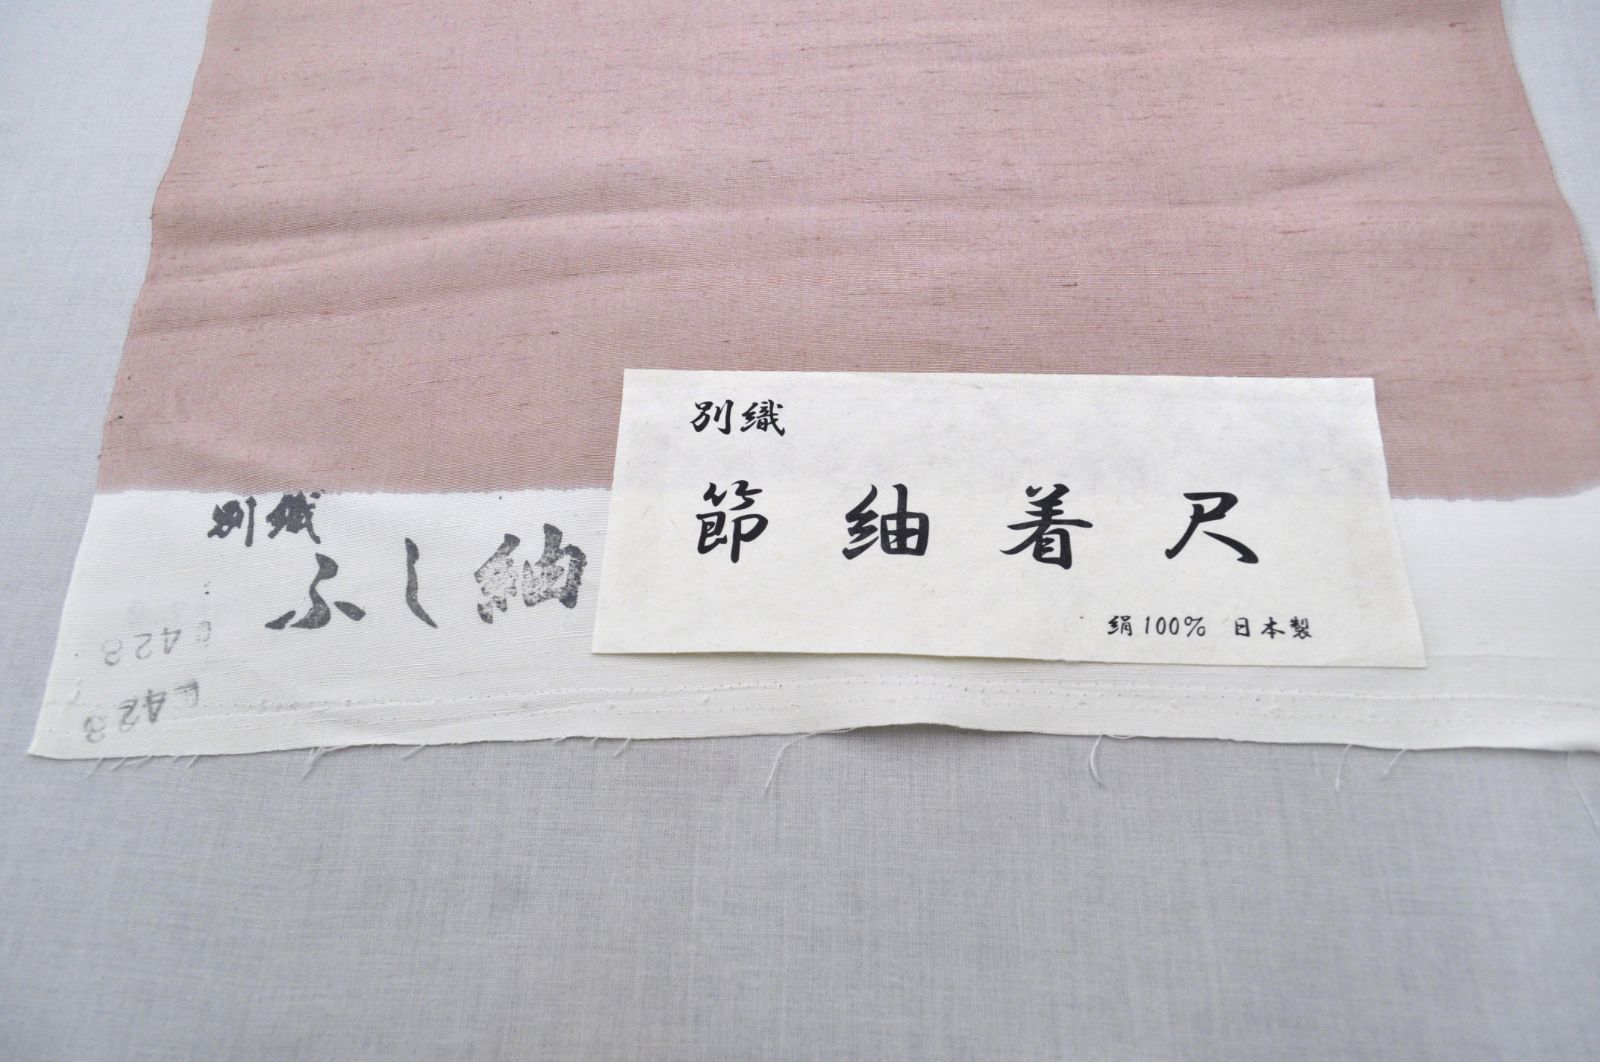 別織
節紬着尺
絹100% 日本製
別織
ふし紬
428
428